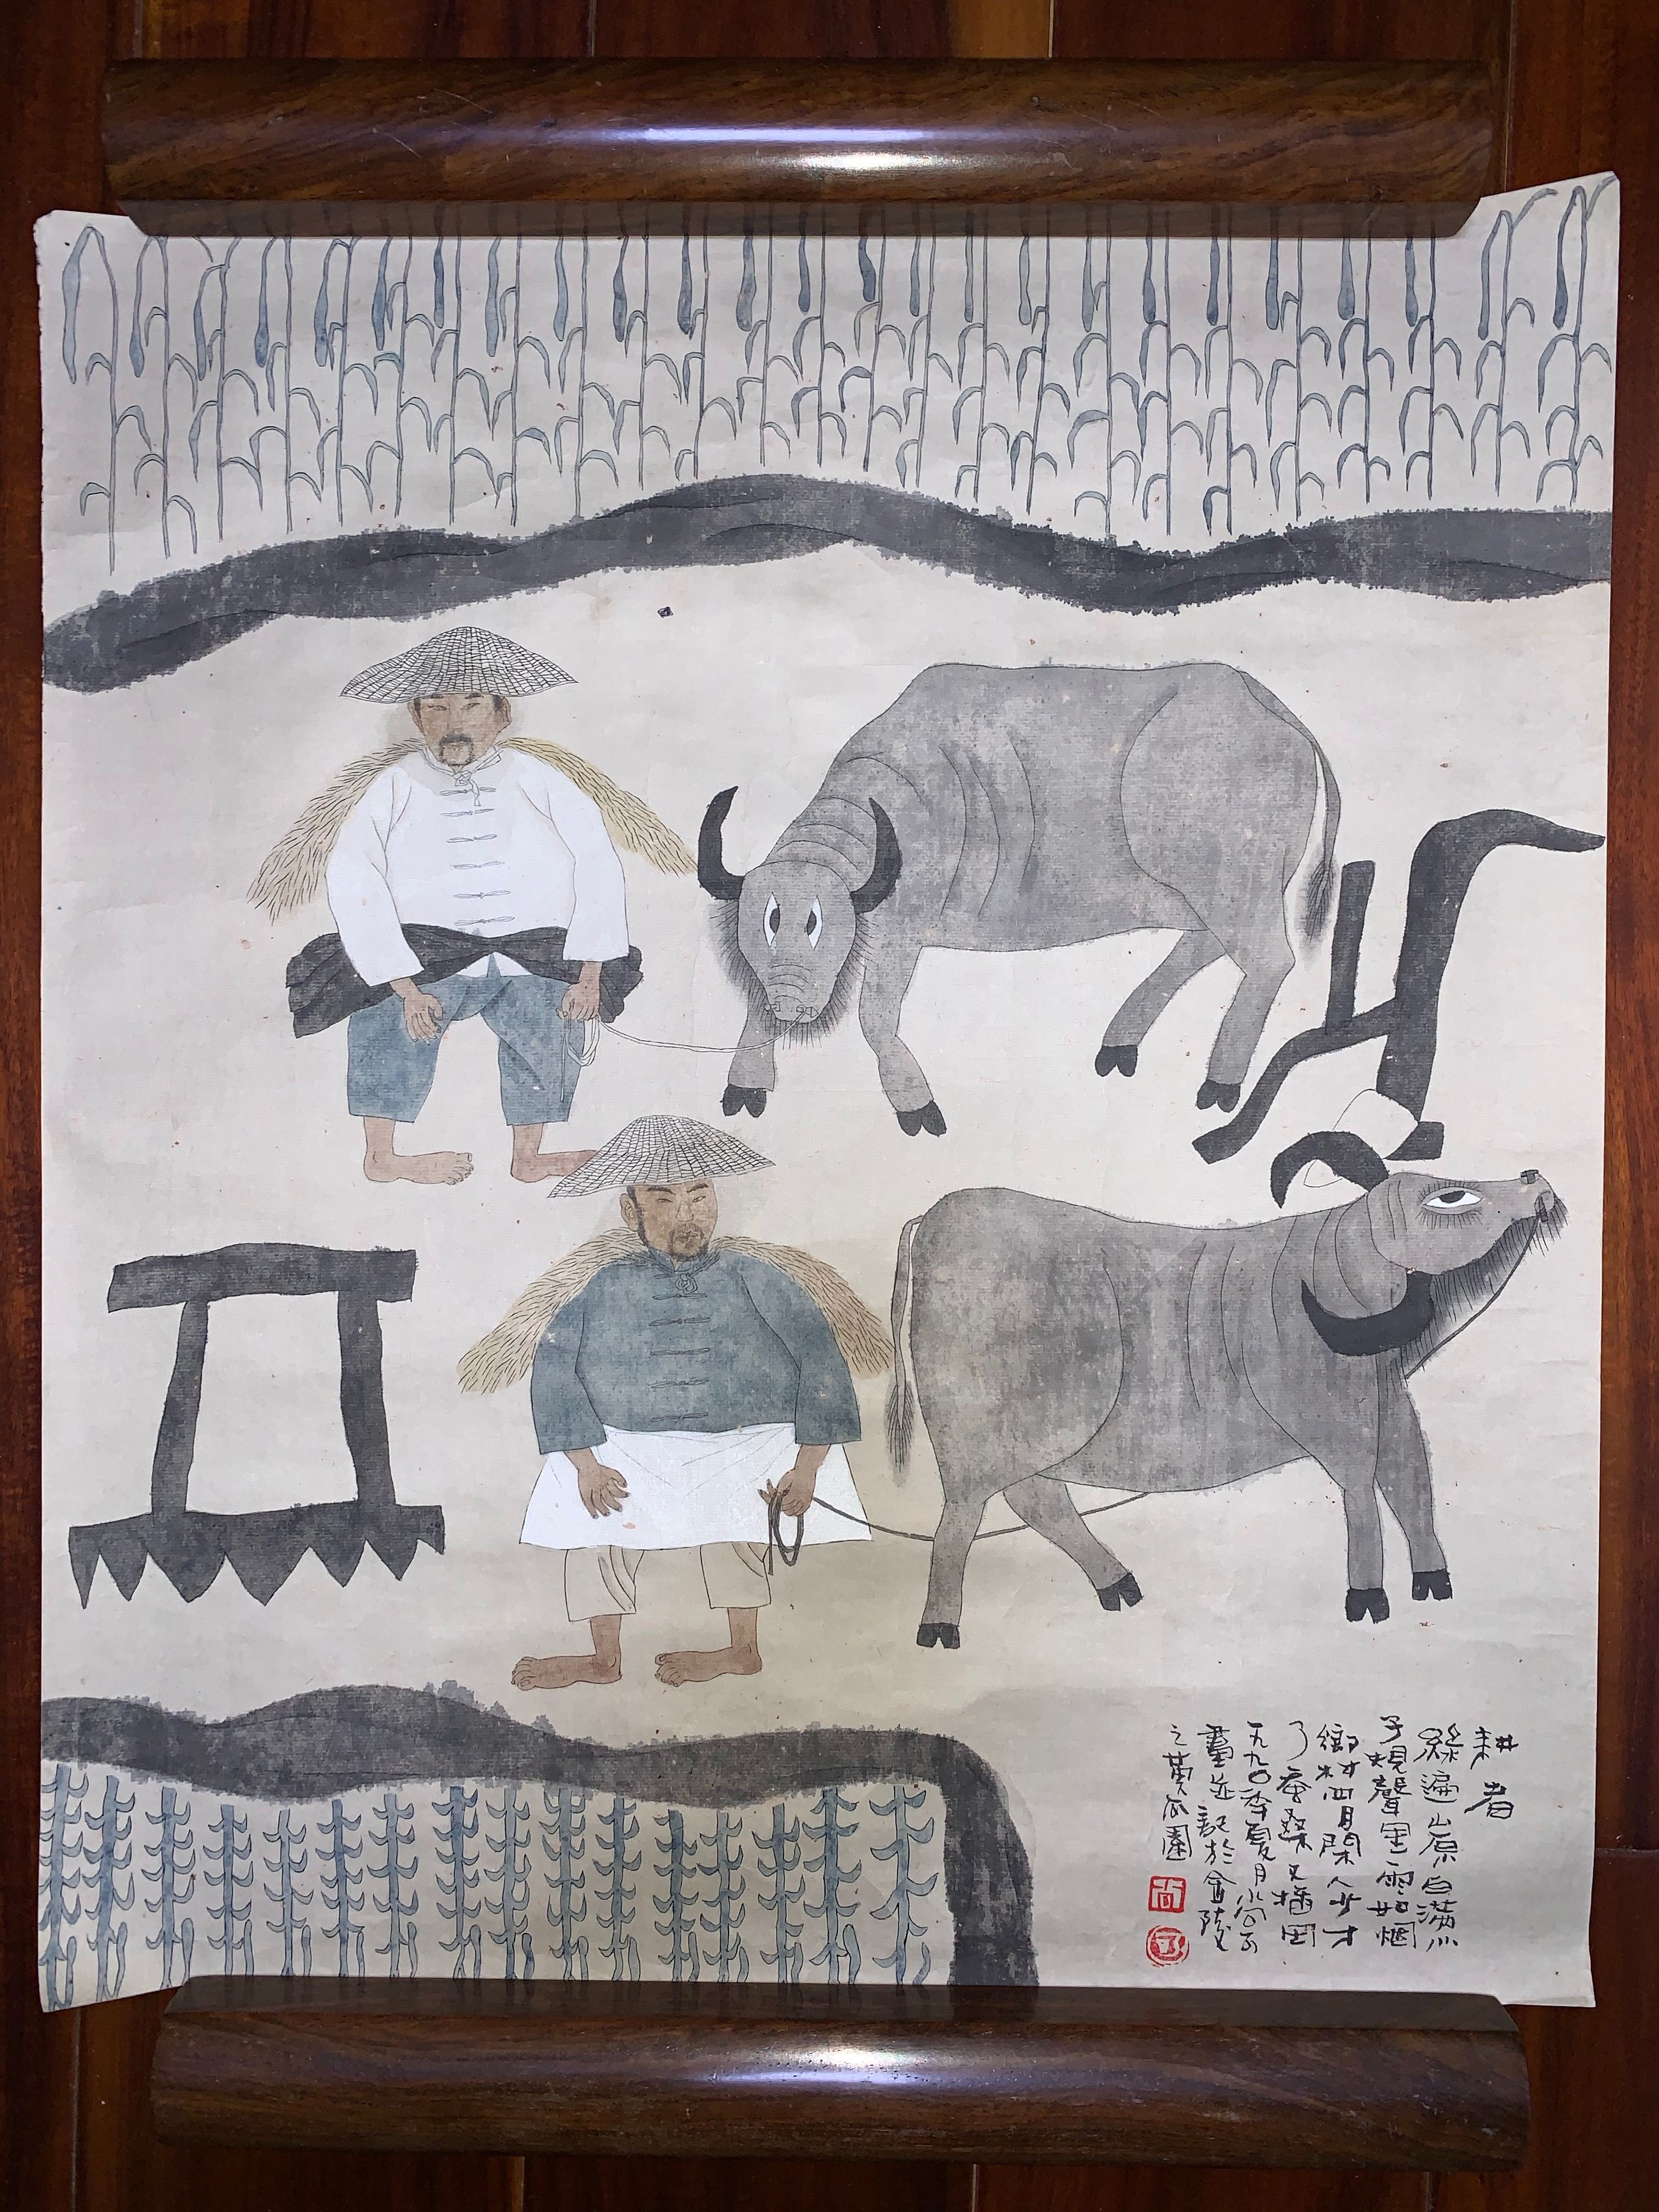 耕者
綠遍山原白滿川
子規聲裏雨如烟
鄉村四月閑人少才
了蚕桑又插田
一九九〇年夏月
畫並記於金陵
之黃瓜園